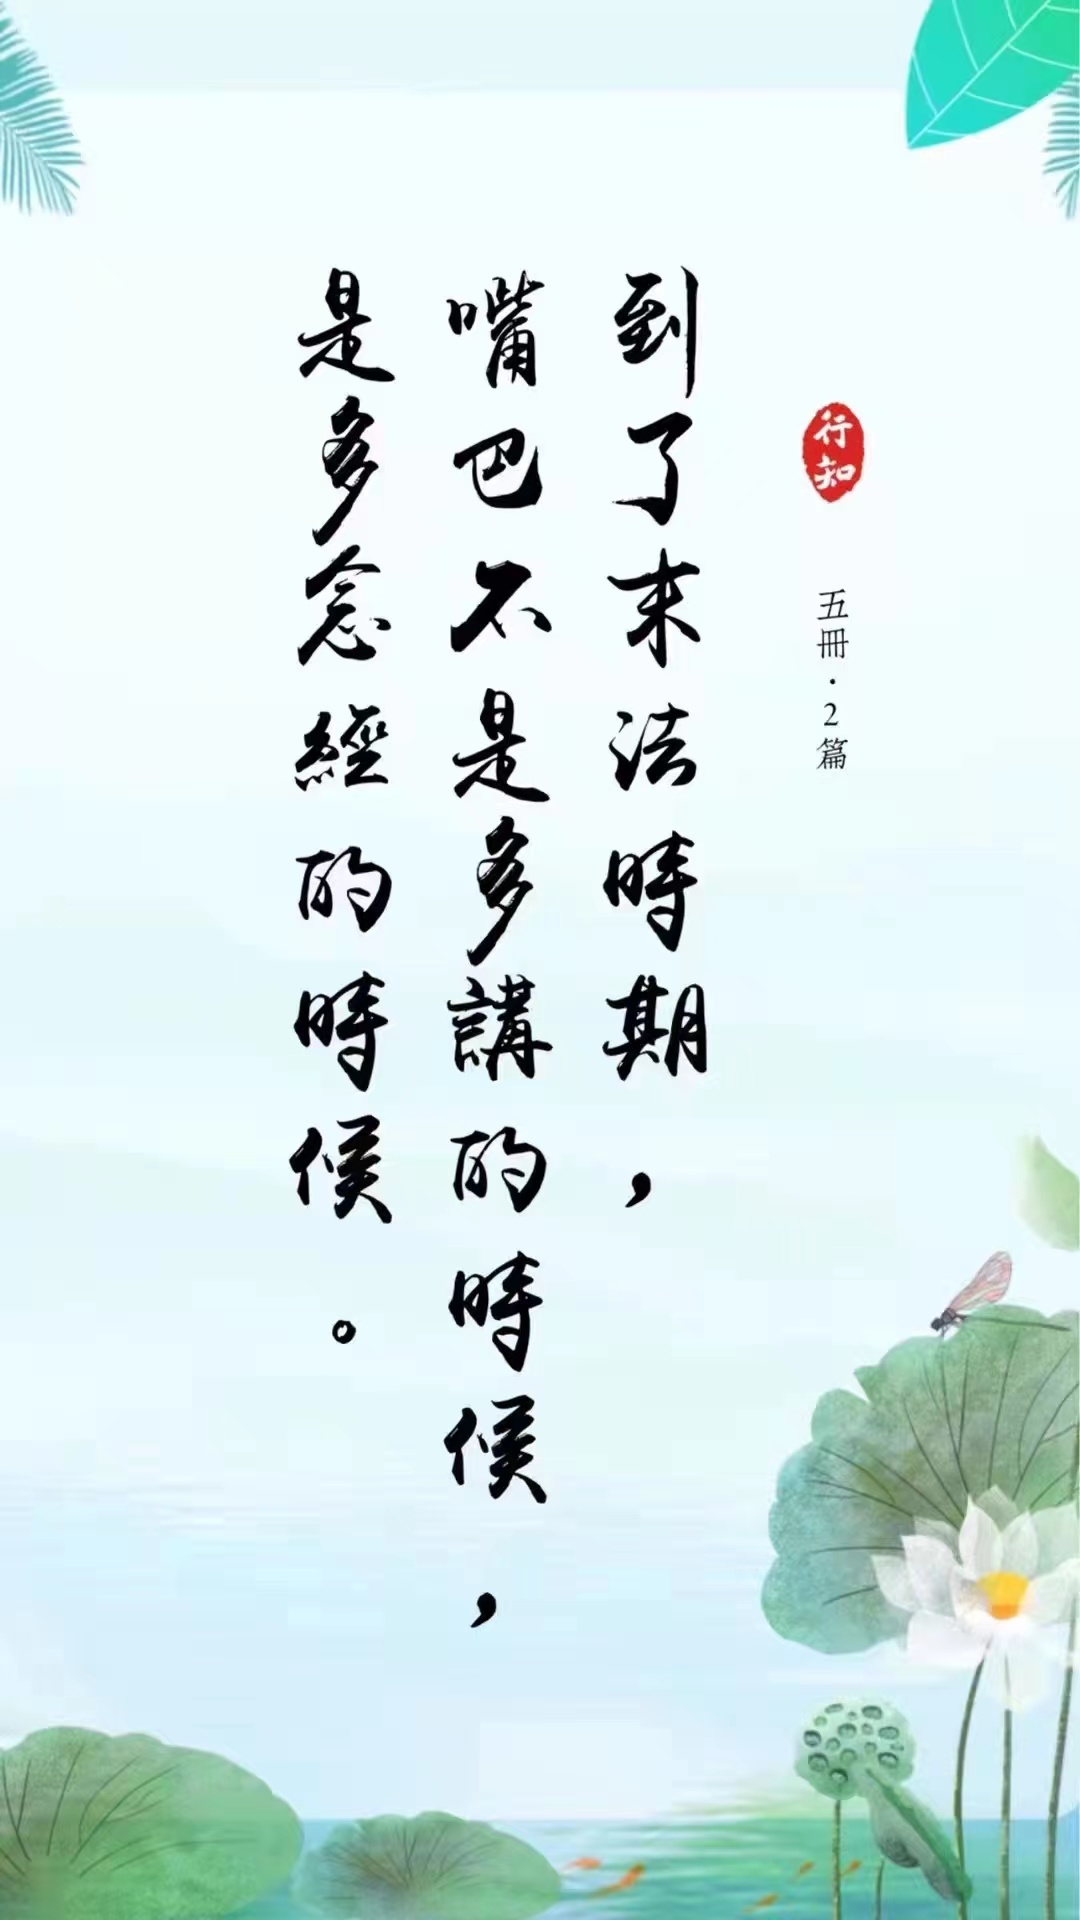 行知
五冊·2篇
到了末法時期，
嘴巴不是多講的時候，
是多念經的時候。